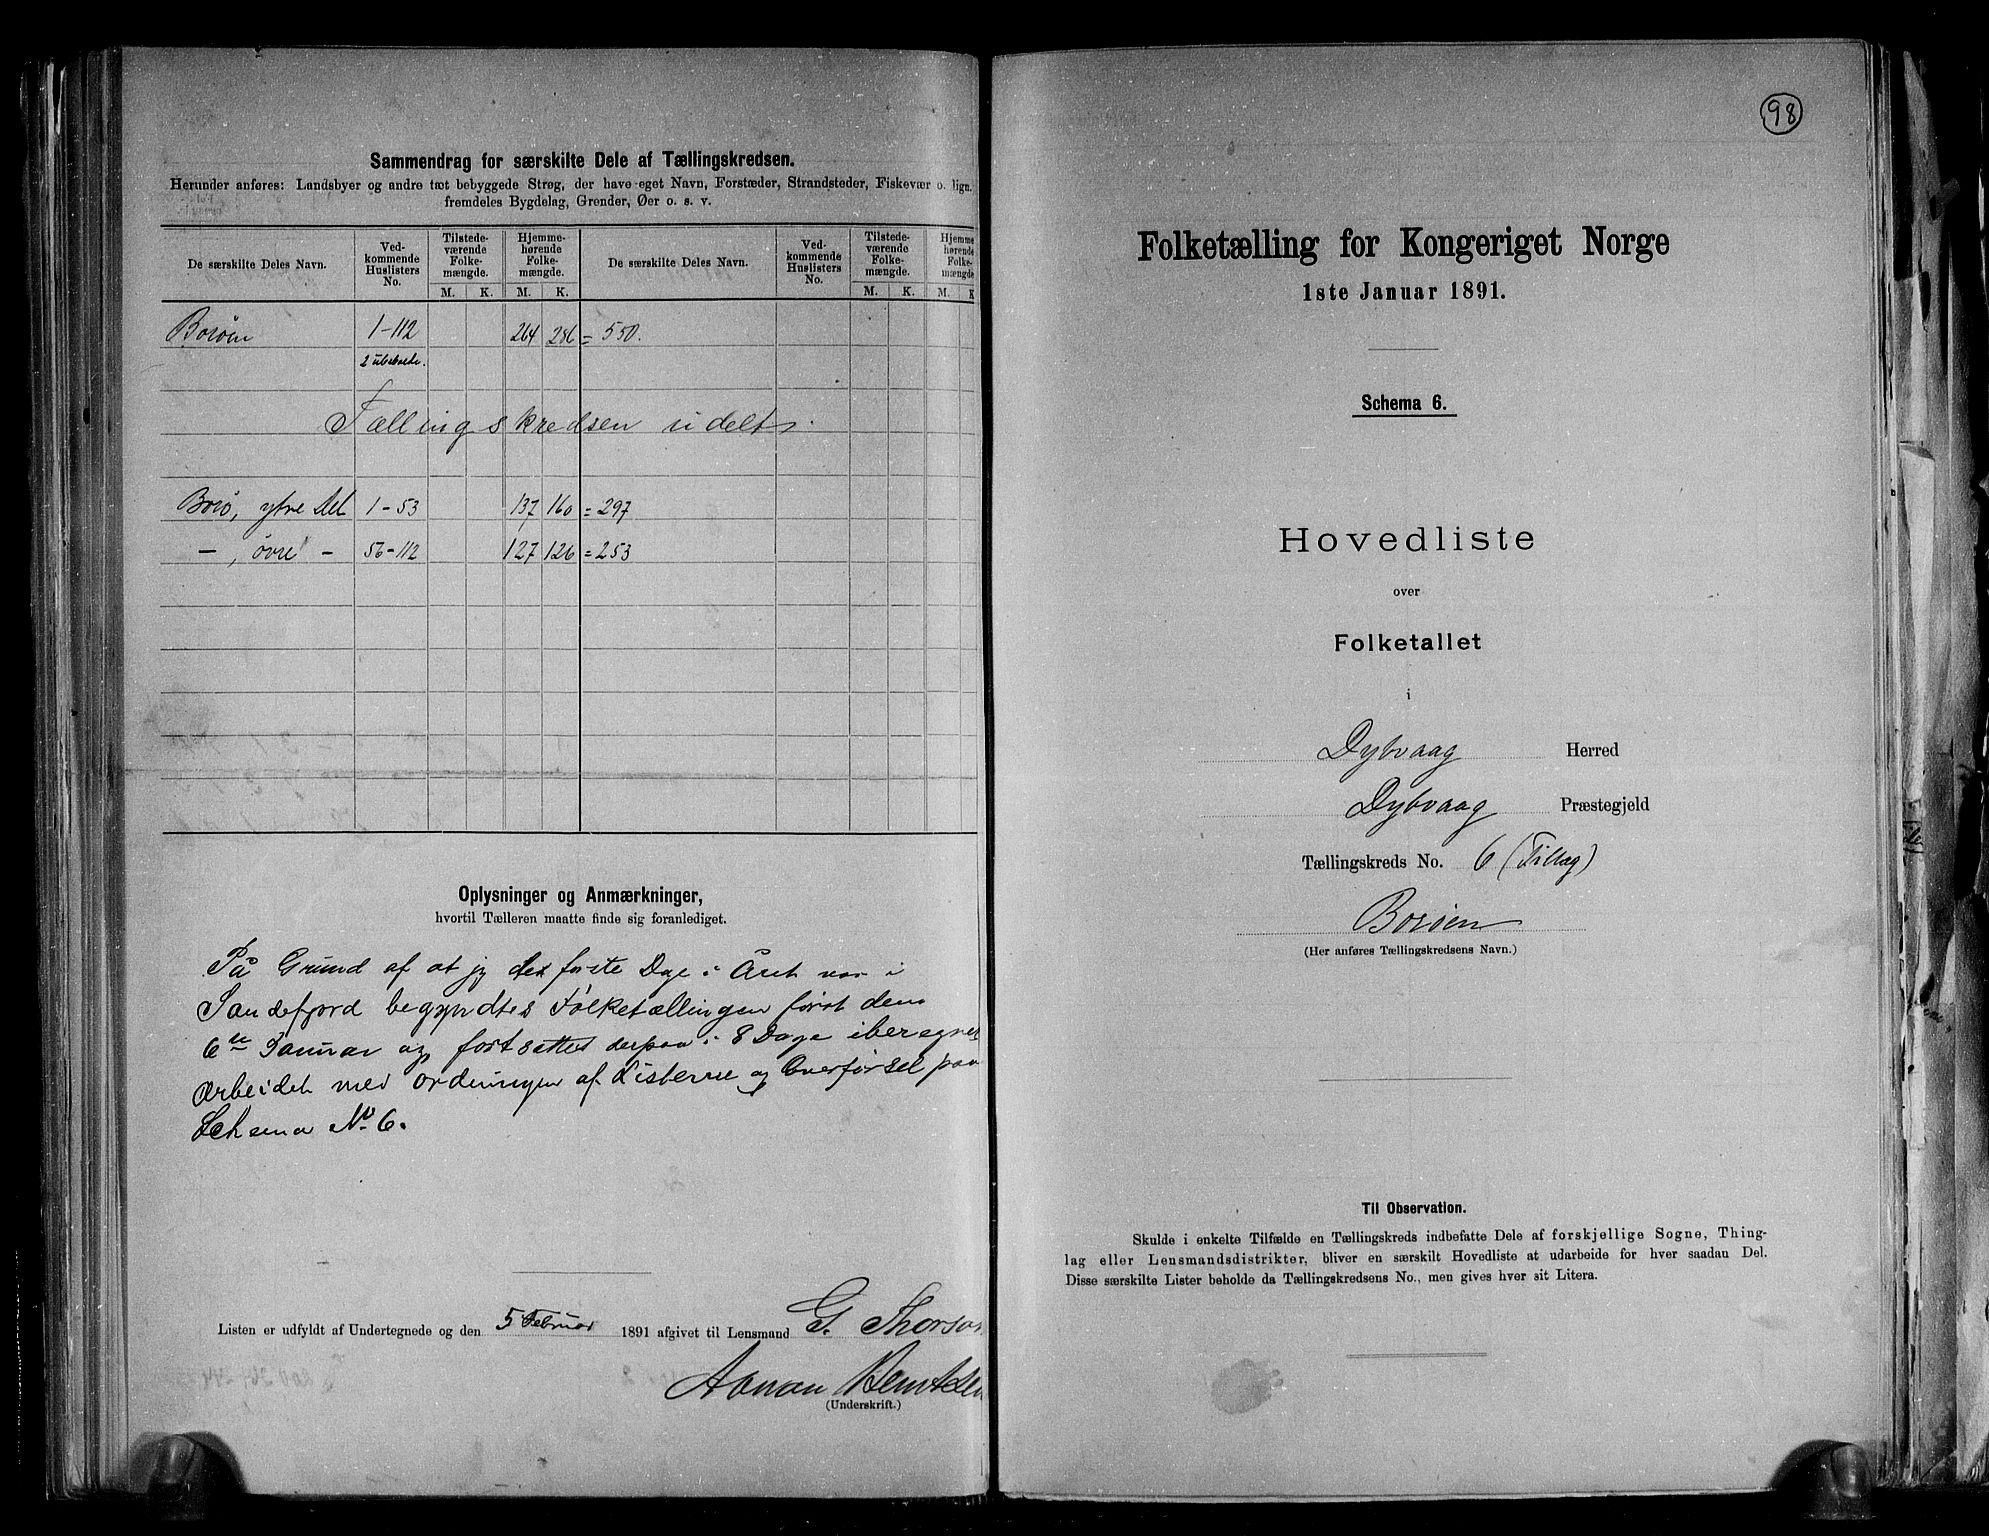 Sammendrag for særskilte Dele af Tællingskredsen.
Herunder anføres: Landsbyer og andre tæt bebyggede Strøg, der have eget Navn, Forstæder, Strandsteder, Fiskevær o. lign.
fremdeles Bygdelag, Grender, Øer o. s. v.
De særskilte Deles Navn. Ved-kommende Huslisters No. Tilstede-værende Folke-mængde. Hjemme-hørende Folke-mængde. De særskilte Deles Navn. Ved-kommende Huslisters No. Tilstede-værende Folke-mængde. Hjemme hørende Folke-mængde
M. K. M. K. M. K. M. K
Borøen 1-112 264 286 = 550.
2 ubeboede.
Tællingskredsen udelt.
Borø, ytre Del 1-53 137 160 = 297
- , øvre - 56-112 127 126 = 253
Oplysninger og Anmærkninger,
hvortil Tælleren maatte finde sig foranlediget.
På Grund af at jeg de første Dage i Året var i
Sandefjord begyndtes Folketællingen først den
6te Januar og fortsattes derpaa i 8 Dage iberegnet
Arbeidet med ordningen af Listerne og Overførsel paa
Schema No 6.
Listen er udfyldt af Undertegnede og den 5 Februar 1891 afgivet til Lensmand G. Thorson
Aanon Berntsen
(Underskrift.)
98
Folketælling for Kongeriget Norge
1ste Januar 1891.
Schema 6.
Hovedliste
over
Folketallet
i
Dybvaag Herred
Dybvaag Præstegjeld
Tællingskreds No. 6 (Tillæg)
Borøen
(Her anføres Tællingskredsens Navn.)
Til Observation.
Skulde i enkelte Tilfælde en Tællingskreds indbefatte Dele af forskjellige Sogne, Thing-
lag eller Lensmandsdistrikter, bliver en særskilt Hovedliste at udarbeide for hver saadan Del.
Disse særskilte Lister beholde da Tællingskredsens No., men gives hver sit Litera.